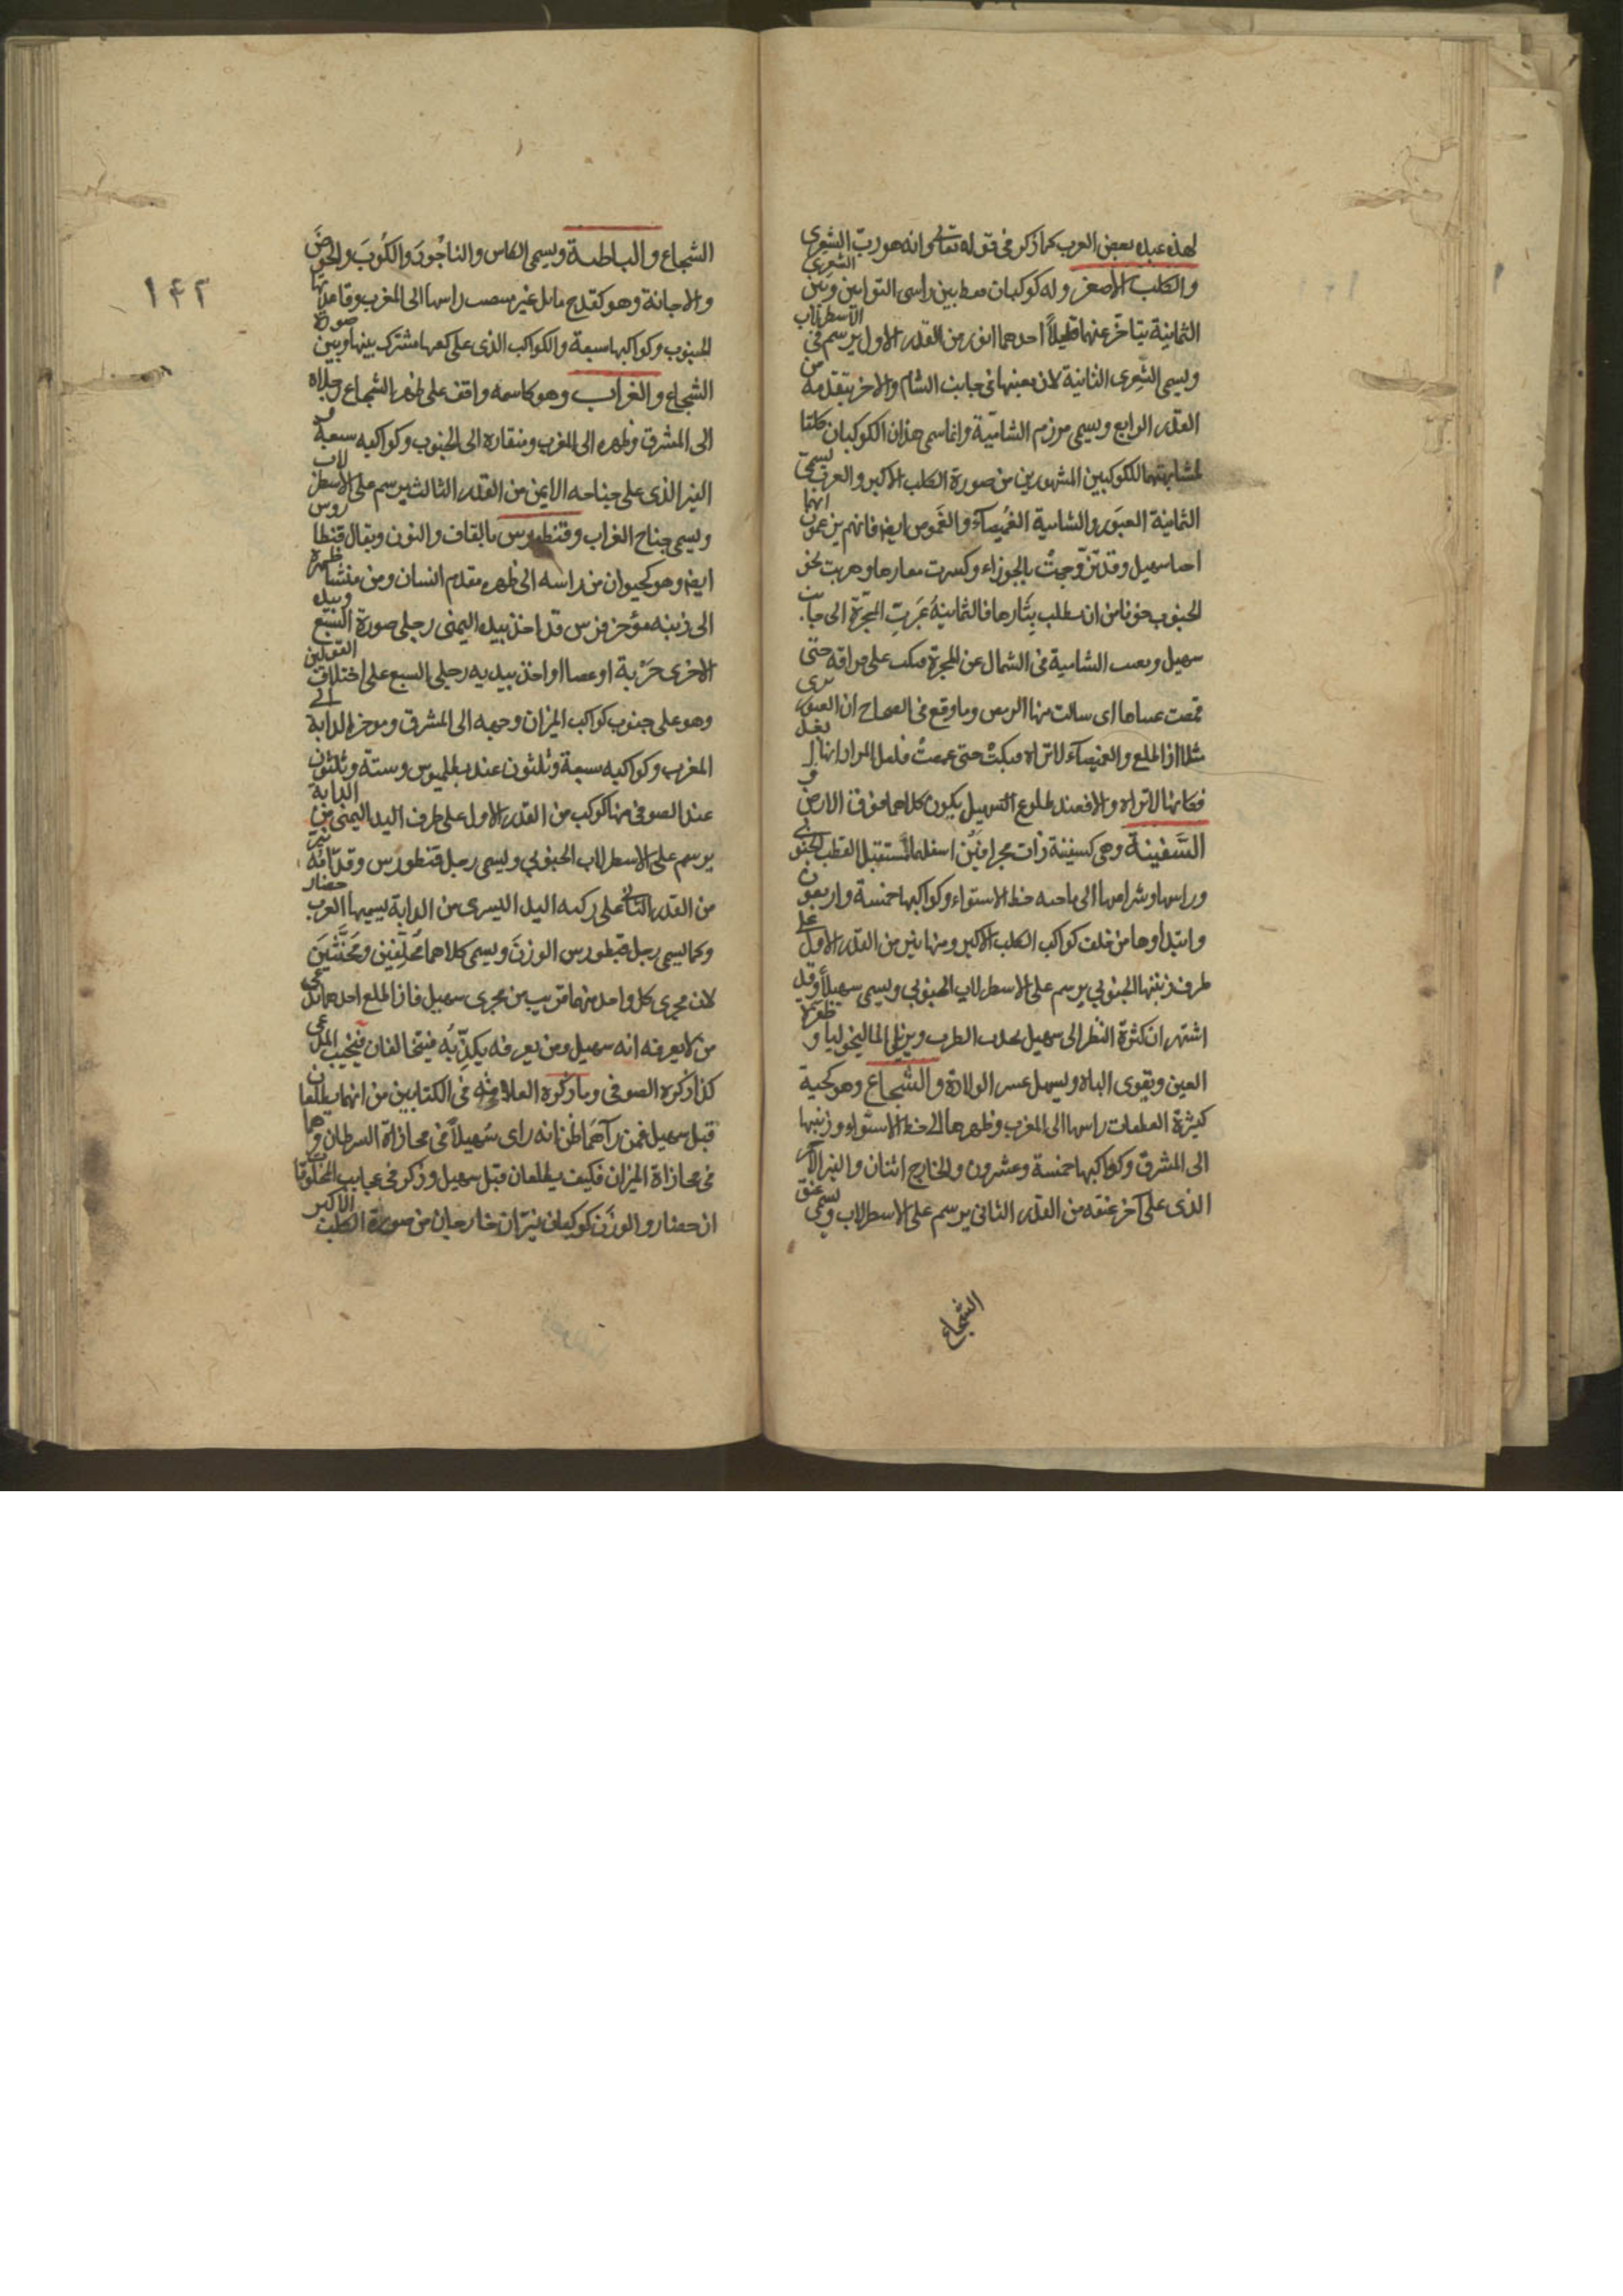 لهذه عبده بعض العرب كما ذكر في قوله تعالى وانه هو رب الشعرى
والكلب الاصغر وله كوكبان فقط بين راسي التوامين وبين الشعرى
اليمانية يتاخر عنهما قليلاً احدهما انور من القدر الاول يرسم في الاسطرلاب
ويسمى الشعرى لان مغيبها في جانب الشام والاخر يتقدمه من
القدر الرابع ويسمى مرزم الشامية وانما سمي هذان الكوكبان كلبا
لمشابهتهما للكوكبين المشهورين من صورة الكلب الاكبر والعرب يسمى
اليمانية العبور والشامية الغُميصاء والغموص ايضا فانهم يزعمون انهما
اختا سهيل وقد تزوجت بالجوزاء وكسرت فقارها وهربت نحو
الجنوب خوفا من ان يطلب بثارها فاليمانية عبرت المجرة الى جانب
سهيل وبقيت الشامية في الشمال عن المجرة فبكت على فراقه حتى
غمصت عيناها اى سالت منها الرمص وما وقع في الصحاح ان العبور ترى
سهيلا اذا طلع والغميصاء لا تراه فبكت حتى غمصت فلعل المراد انها
فكانها لا تراه والا فعند طلوع السهيل يكون كلاهما فوق الارض و
السفينة وهي كسفينة ذات مجرافين اسفلها مستقبل القطب الجنوبي
وراسها وشراعها الى ناحية خط الاستواء وكواكبها خمسة واربعون
وابتداوها من خلف كواكب الكلب الاكبر ومنها نير من القدر الاول على
طرف ذنبها الجنوبي يرسم على الاسطرلاب الجنوبي ويسمى سهيلاً وقد
اشتهر ان كثرة النظر الى سهيل يحدث الطرب ويزيل الماليخوليا و ظفرة
العين ويقوى الباه ويسهل عسر الولادة والشجاع وهو كحية
كثيرة العطفات راسها الى المغرب وظهرها الى خط الاستواء وذنبها
الى المشرق وكواكبها خمسة وعشرون والخارج اثنان والنير الاحمر
الذى على آخر عنقه من القدر الثاني يرسم على الاسطرلاب ويسمى عنق
الشجاع
١٤٢
الشجاع والباطية ويسمى الكاس والناجُودَ والكُوبَ والحوضَ
والاجانة وهو كقدح مائل غير منتصب راسها الى المغرب وقاعدتها
الجنوب وكواكبها سبعة والكواكب الذى على كعبها مشترك بينها وبين صورة
الشجاع والغراب وهو كاسمه واقف على ظهر الشجاع رجلاه
الى المشرق وظهره الى المغرب ومنقاره الى الجنوب وكواكبه سبعة و
النير الذى على جناحه الايمن من القدر الثالث يرسم على الاسطرلاب
ويسمى جناح الغراب وقنطورس بالقاف والنون ويقال قنطاروس
ايضا وهو كحيوان من راسه الى ظهره مقدم انسان ومن منشأ ظهره
الى ذنبه مؤخر فرس قد اخذ بيده اليمنى رجلي صورة السبع وبيده
الاخرى حربة او عصا او اخذ بيديه رجلي السبع على اختلاف القولين
وهو على جنوب كواكب الميزان وجهه الى المشرق وموخر الدابة الى
المغرب وكواكبه سبعة وثلثون عند بطلميوس وستة وثلثون
عند الصوفي منها كوكب من القدر الاول على طرف اليد اليمنى من الدابة
يرسم على الاسطرلاب الجنوبي ويسمى رجل قنطورس وقدامه نير
من القدر الثاني على ركبة اليد اليسرى من الدابة يسميها العرب حضار
وكما يسمى رجل قنطورس الوزنَ ويسمى كلاهما محلِفَين ومحنّثَين
لان مجرى كل واحد منهما قريب من مجرى سهيل فاذا طلع احدهما يدعى
من لا يعرفه انه سهيل ومن يعرفه يكذّبُه فيتحالفان فيخيب المدعى
كذا ذكره الصوفي وما ذكره العلامة في الكتابين من انهما يطلعان
قبل سهيل فمن رآهما ظن انه راى سُهيلاً في محاذاة السرطان وهما
في محاذاة الميزان فكيف يطلعان قبل سهيل وذكر في عجايب المخلوقات
ان حضار والوزن كوكبان نيّران خارجان من صورة الكلب الاكبر